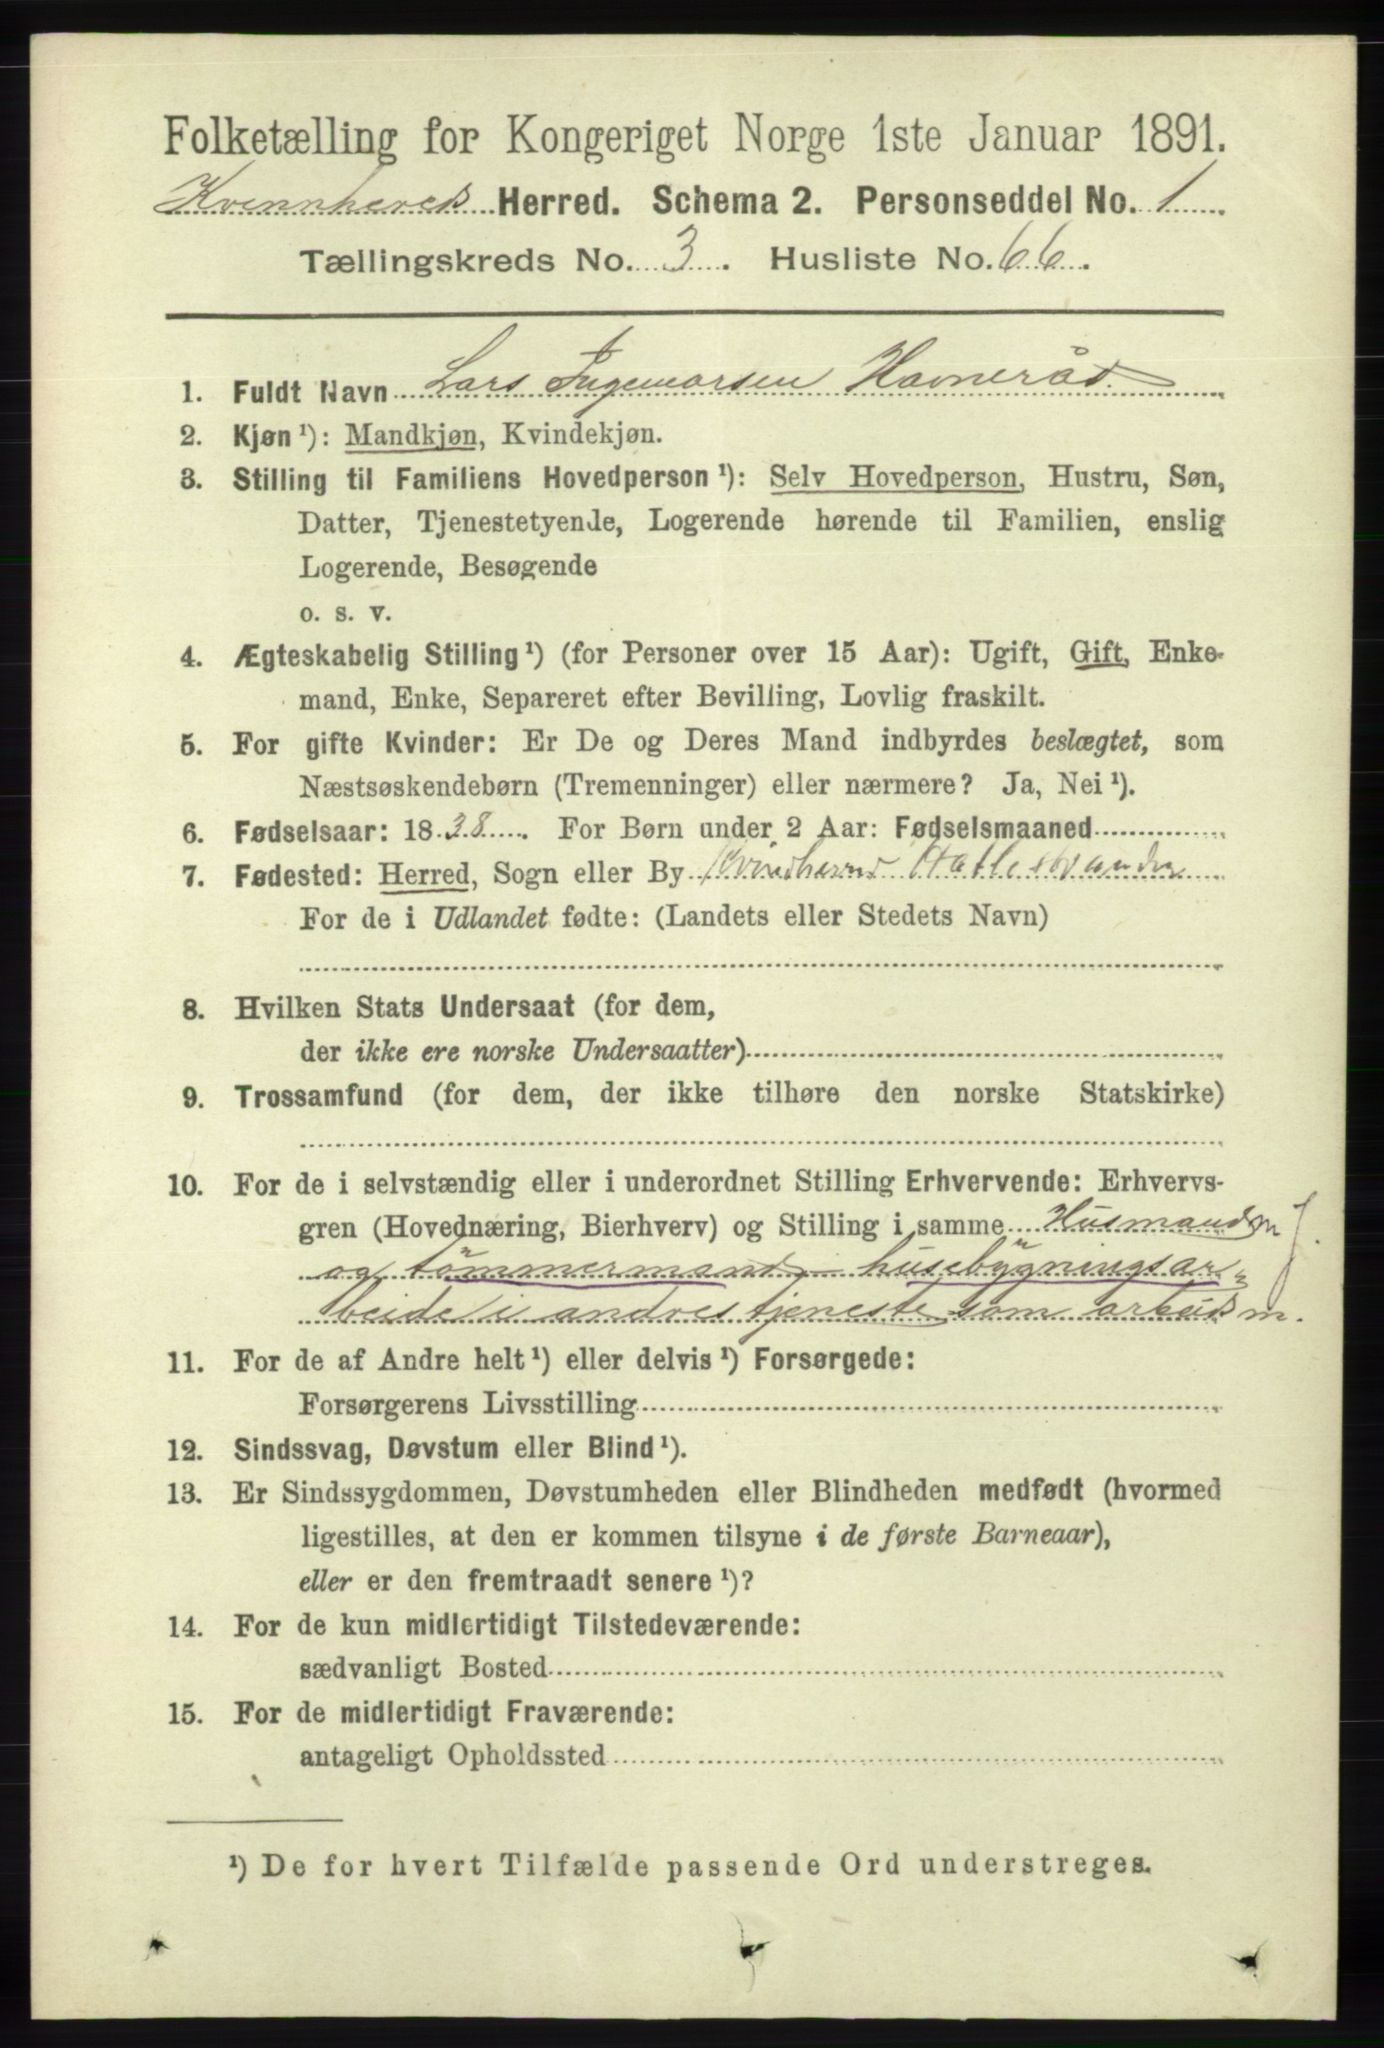 Folketælling for Kongeriget Norge 1ste Januar 1891.
Kvinnhered Herred. Schema 2. Personseddel No. 1
Tællingskreds No. 3. Husliste No. 66.
1. Fuldt Navn Lars Ingemarsen Havneråd.
2. Kjøn ¹): Mandkjøn, Kvindekjøn.
3. Stilling til Familiens Hovedperson ¹): Selv Hovedperson, Hustru, Søn,
Datter, Tjenestetyende, Logerende hørende til Familien, enslig
Logerende, Besøgende
o. s. v.
4. Ægteskabelig Stilling ¹) (for Personer over 15 Aar): Ugift, Gift, Enke-
mand, Enke, Separeret efter Bevilling, Lovlig fraskilt.
5. For gifte Kvinder: Er De og Deres Mand indbyrdes beslægtet, som
Næstsøskendebørn (Tremenninger) eller nærmere? Ja, Nei ¹).
6. Fødselsaar: 1838. For Børn under 2 Aar: Fødselsmaaned
7. Fødested: Herred, Sogn eller By Kvindherred
For de i Udlandet fødte: (Landets eller Stedets Navn)
8. Hvilken Stats Undersaat (for dem,
der ikke ere norske Undersaatter)
9. Trossamfund (for dem, der ikke tilhøre den norske Statskirke)
10. For de i selvstændig eller i underordnet Stilling Erhvervende: Erhvervs-
gren (Hovednæring, Bierhverv) og Stilling i samme Husmand m J.
og tömmermand, husebygningsar=
beide i andres tjeneste som arbeids m.
11. For de af Andre helt ¹) eller delvis ¹) Forsørgede:
Forsørgerens Livsstilling
12. Sindssvag, Døvstum eller Blind ¹).
13. Er Sindssygdommen, Døvstumheden eller Blindheden medfødt (hvormed
ligestilles, at den er kommen tilsyne i de første Barneaar),
eller er den fremtraadt senere ¹)?
14. For de kun midlertidigt Tilstedeværende:
sædvanligt Bosted
15. For de midlertidigt Fraværende:
antageligt Opholdssted
¹) De for hvert Tilfælde passende Ord understreges.